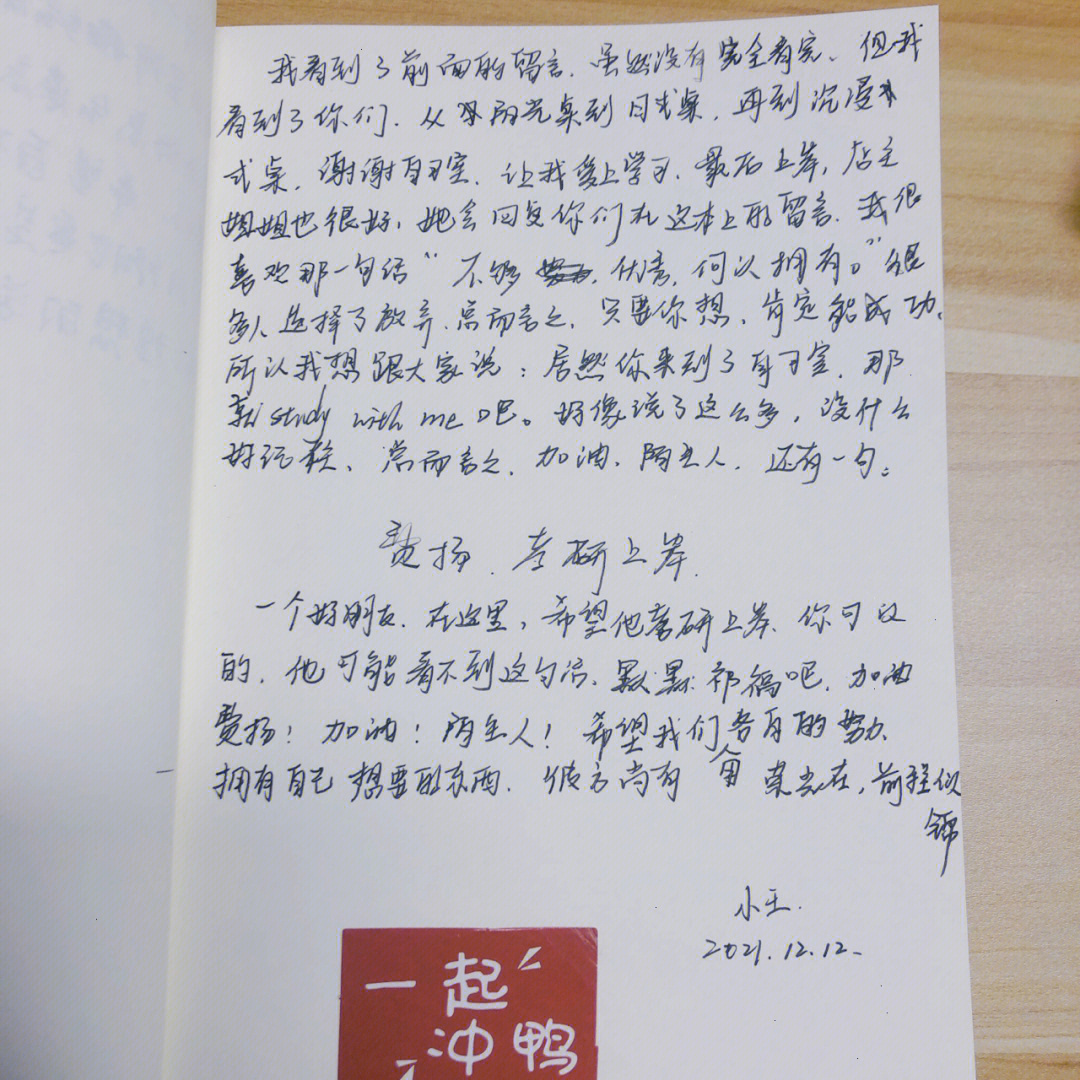 我看到了前面的留言,虽然没有完全看完、但我
看到了你们、从阳光桌到日式桌,再到沉浸
式桌,谢谢自习室,让我爱上学习,最后上岸,店主
姐姐也很好,她会回复你们在这本上的留言,我很
喜欢那一句话“不够 优秀,何以拥有。”很
多人选择了放弃、总而言之,只要你想、肯定能成功、
所以我想跟大家说:居然你来到了自习室,那
就study with me吧。好像说了这么多,没什么
好玩、总而言之,加油、陌生人,还有一句:
费扬,考研上岸,
一个好朋友,在这里,希望他考研上岸、你可以
的,他可能看不到这句话、默默祈福吧,加油
费扬!加油!陌生人!希望我们各自的努力、
拥有自己想要的东西,彼方尚有 荣光在,前程似
锦
小王.
2021.12.12.
一起
冲鸭